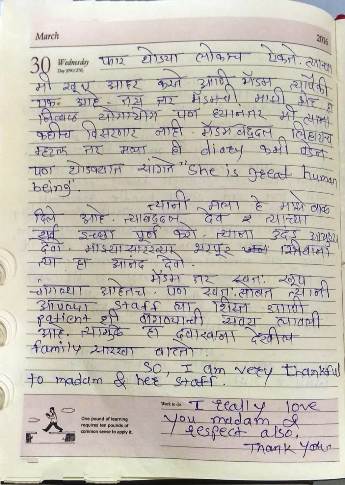 March 2016
30 Wednesday फार थोड्या लोकांच ऐकते. त्यांचा
Day
मी खूप आदर करते आणि मॅडम त्यापैकी
एक आहे. तसं तर मॅडमची माझी भेट हा
योगायोग पण ह्यानंतर मी त्यांना
कधीच विसरणार नाही. मॅडम बद्दल लिहायच
म्हटलं तर मला ही diary कमी पडेल.
पण थोडक्यात सांगते "She is great human
being".
त्यांनी मला हे माझे बाळ
दिले आहे. त्याबद्दल देव त्यांच्या
सर्व इच्छा पूर्ण करो. त्यांना उदंड आयुष्य
देवो. माझ्या सारख्या भरपूर
त्या हा आनंद देवो.
मॅडम तर स्वतः खूप
चांगल्या आहेतच. पण स्वतः सोबत त्यांनी
आपल्या staff ला शिस्त आणि
patient शी वागण्याची सवय लावली
आहे. त्यामुळे हा दवाखाना देखील
family सारखा वाटतो.
So, I am very thankful
to madam & her staff.
One pound of learning
requires ten pounds of
common sense to apply it.
Work to do I really love
you madam &
respect also.
Thank you